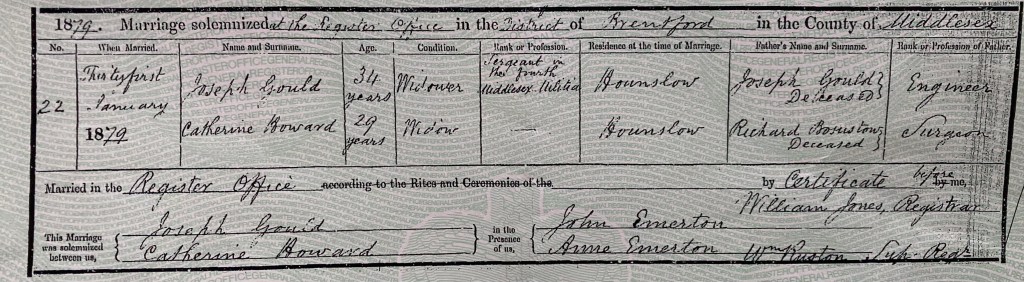 1879. Marriage solemnized at the Register Office in the District of Brentford in the County of Middlesex
No. When Married. Name and Surname. Age. Condition. Rank or Profession. Residence at the time of Marriage. Father's Name and Surname. Rank or Profession of Father.
22 Thirty first January 1879 Joseph Gould 34 years Widower Sergeant in the fourth Middlesex Militia Hounslow Joseph Gould Deceased Engineer
Catherine Howard 29 years Widow — Hounslow Richard Bosustow Deceased Surgeon
Married in the Register Office according to the Rites and Ceremonies of the by Certificate before by me,
William Jones, Registrar
This Marriage was solemnized between us, Joseph Gould in the Presence of us, John Emerton
Catherine Howard Anne Emerton Wm Ruston Sup. Regr